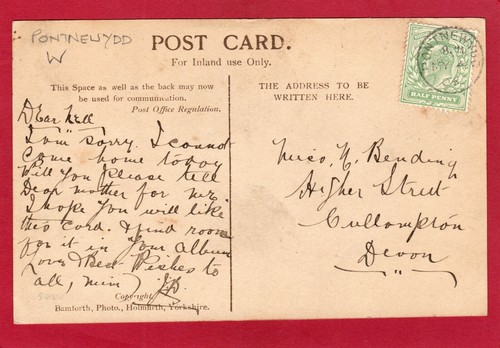 PONTNEWYDD
W
POST CARD.
For Inland use Only.
This Space as well as the back may now
be used for communication.
Post Office Regulation.
THE ADDRESS TO BE
WRITTEN HERE.
HALF PENNY
Dear Nell
I am sorry. I cannot
come home today
Will you please tell
Dear mother for me.
I hope you will like
this card. & find room
for it in your album
Love & Best Wishes to
all,
Miss, N. Bending
Higher Street
Cullompton
Devon
Copyright
Bamforth, Photo., Holmfirth, Yorkshire.